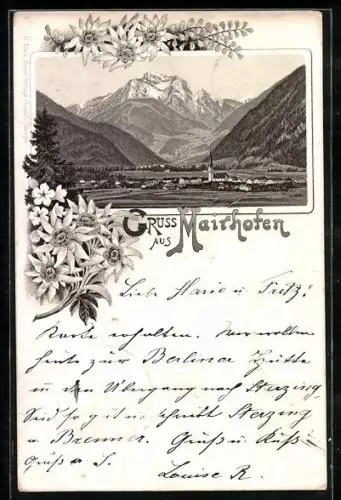 Gruss
aus Mairhofen
Liebe Marie u Fritz!
Karte erhalten. Wir wollten
heute zur Berliner Hütte
u den Übergang nach Sterzing
Seid so gut u schreibt Sterzing
u Brenner. Gruß u. Kuß
Gruß a S.
Louise R.